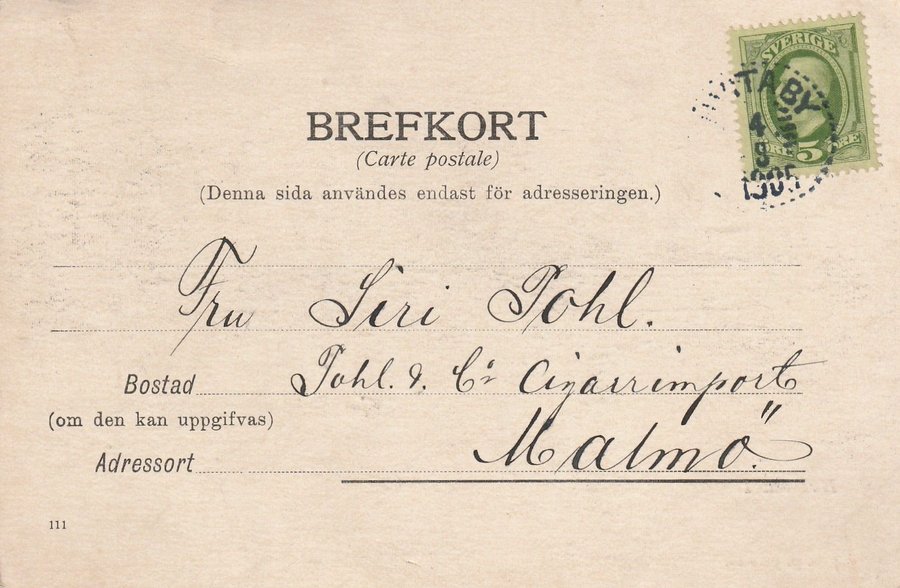 SVERIGE
VITABY
4
9
1905
5 ÖRE
BREFKORT
(Carte postale)
(Denna sida användes endast för adresseringen.)
Fru Siri Pohl.
Bostad Pohl. & Co Cigarrimport
(om den kan uppgifvas)
Adressort Malmö.
111